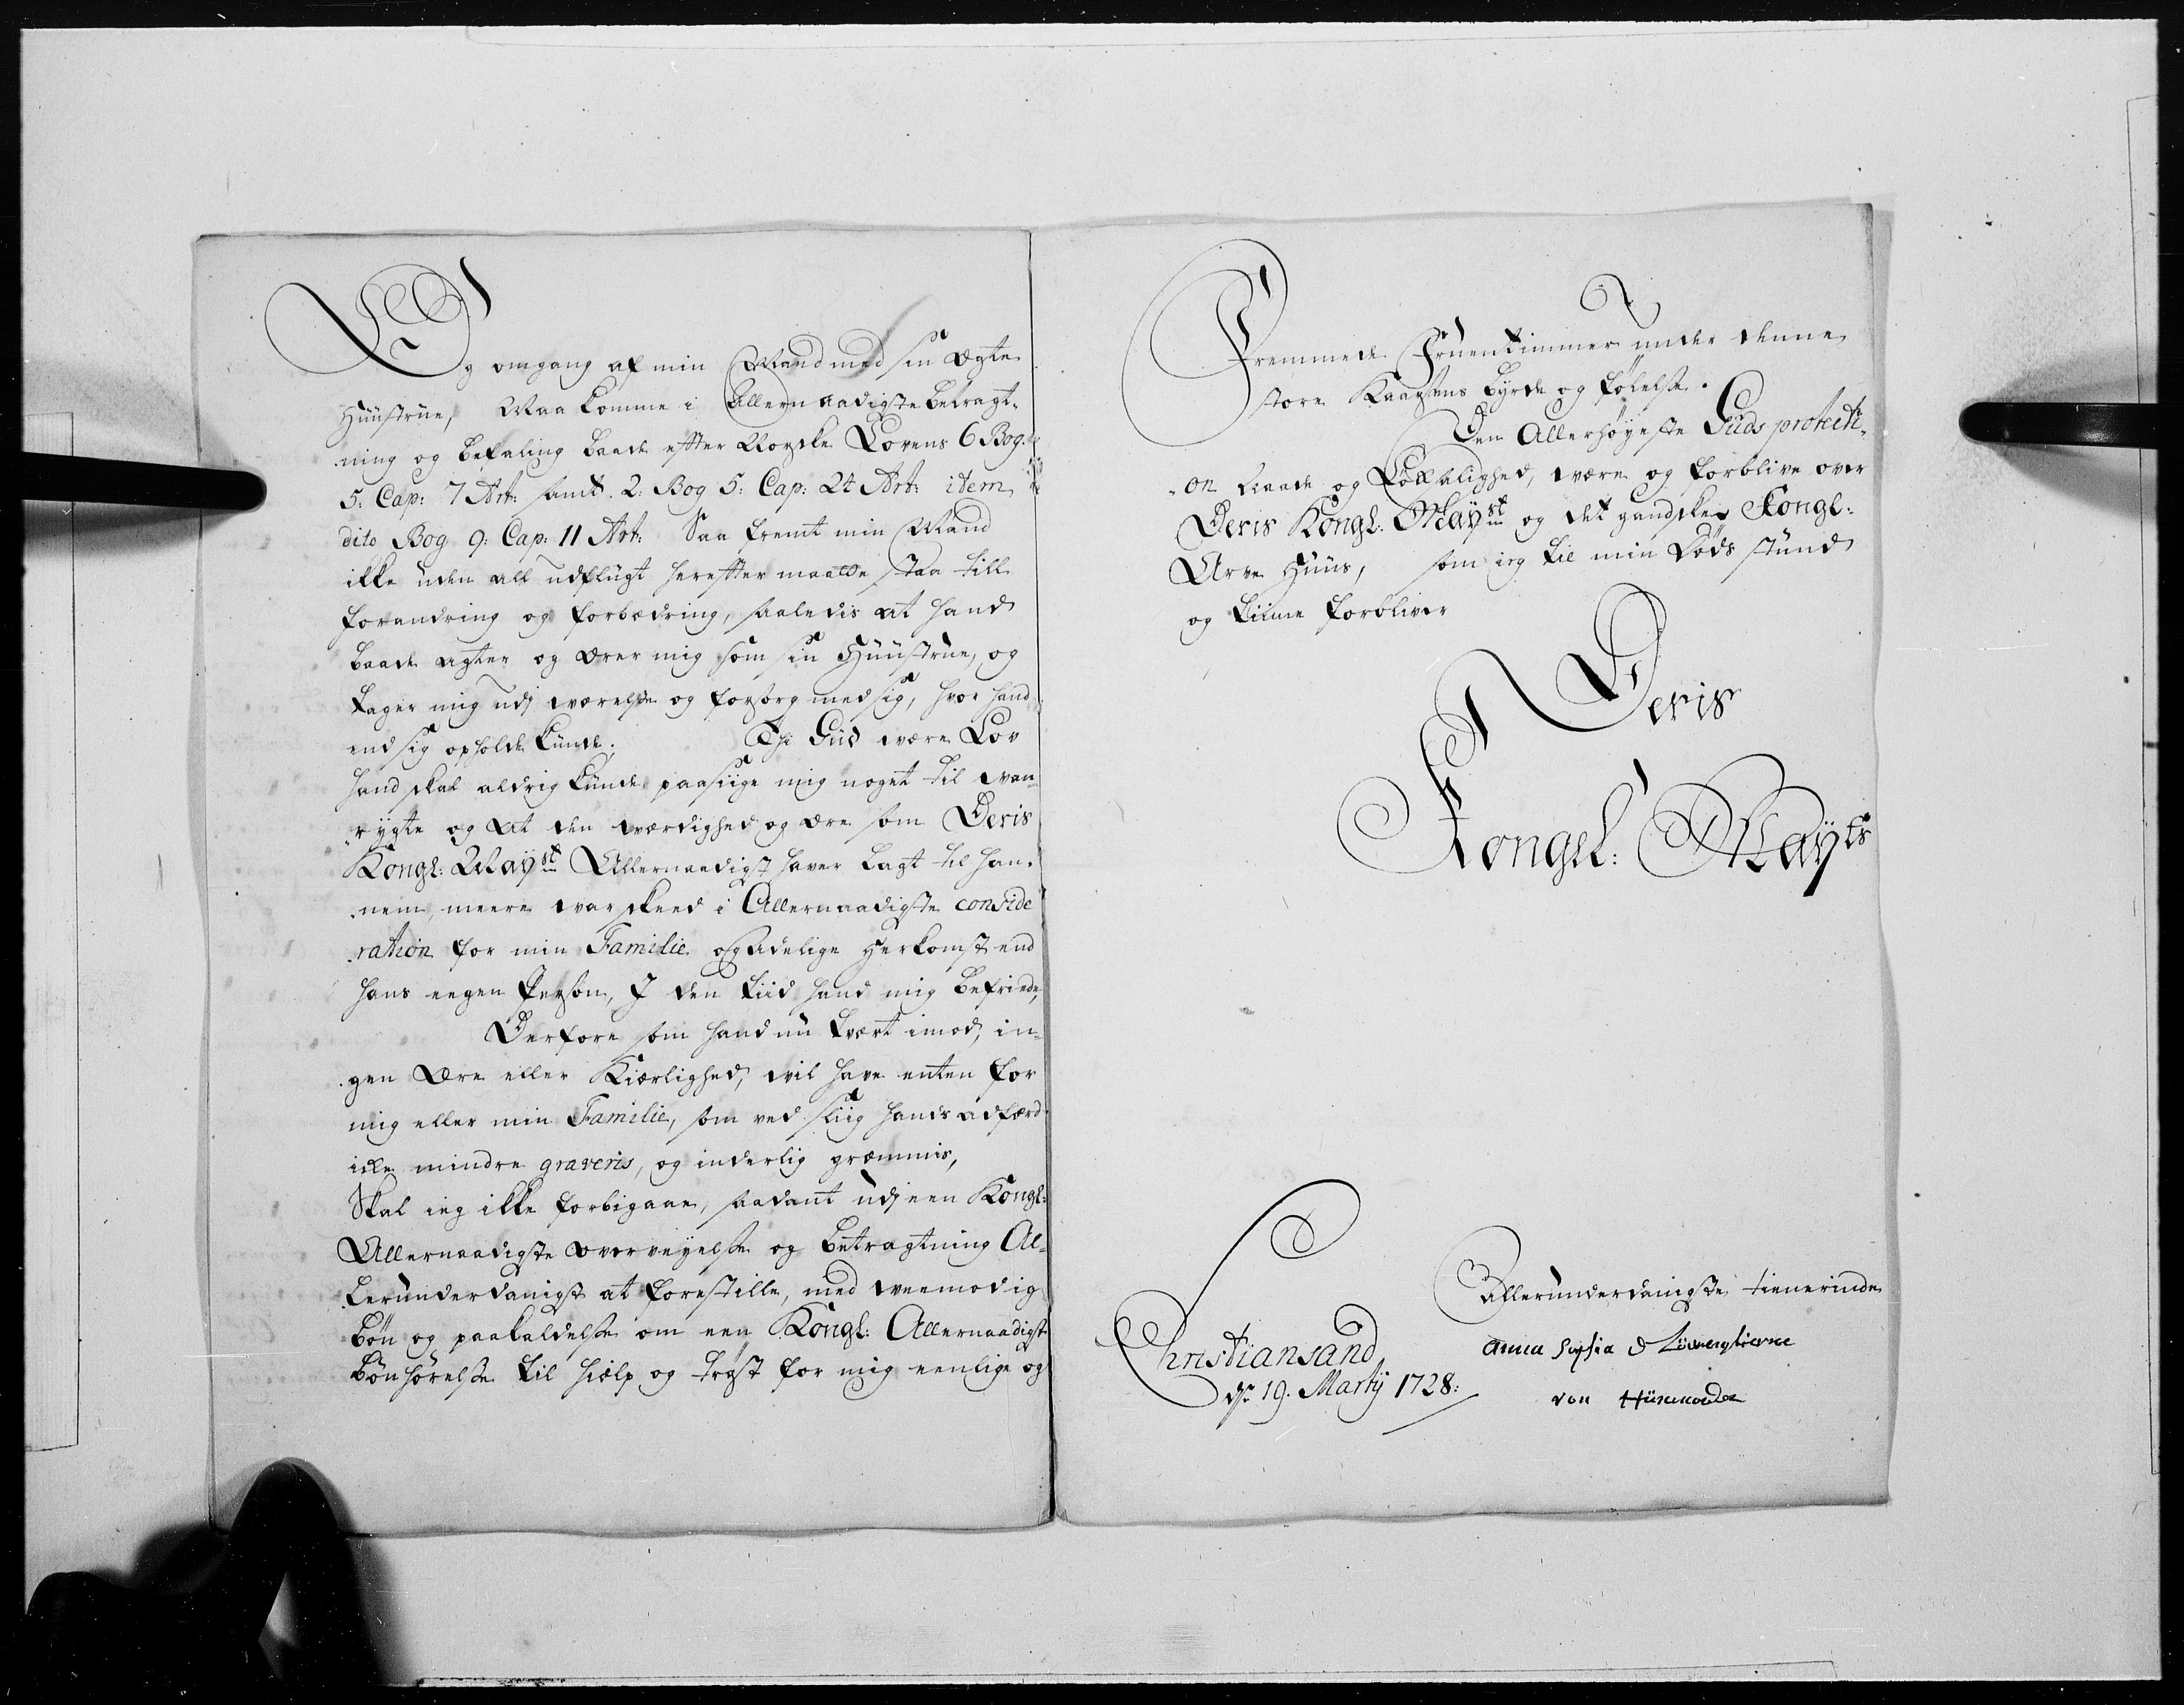 Og omgang af min Mand med sin Ægte
Huustrue, Maa komme i Allernaadigste betragt-
ning og befaling baade efter Norske Lovens 6 Bog.
5: Cap: 7 Art: samt. 2: Bog 5: Cap: 24 Art: item
dito Bog 9: Cap: 11 Art: Saa fremt min Mand
ikke uden all udflugt herefter maatte staa till
forandring og forbædring, saaledis at hand
baade agter og ærer mig som sin Huustrue, og
tager mig udj værelse og forsorg med sig, hvor hand
end sig opholde kunde. Thi Gud være Lov
hand skal aldrig kunde paasiige mig noget til van-
rygte og at den værdighed og ære som Deris
Kongl: Mayst Allernaadigst haver lagt til han-
nem, meere var skeed i Allernaadigste conside
ration for min Familie og Adelige Herkomst end
hans eegen Person, I den tiid hand mig befriede,
Derfore som hand nu tvert imod, in-
gen Ære eller Kiærlighed, vil have enten for
mig eller min Familie, som ved sliig hands adfærd
icke mindre graveris, og inderlig græmmis,
Skal ieg ikke forbigaae, saadant udj een Kongl:
Allernaadigste overveyelse og betragtning Al-
lerunderdanigst at forestille, med veemodig
bøn og paakaldelse om een Kongl: Allernaadigst
bønhørelse til hielp og trøst for mig eenlige og
Fremmede Fruentimmer under denne
store Kaarsens byrde og følelse.
Den Allerhøyeste Guds protecti-
on Naade og Lÿcksalighed, være og forblive over
Deris Kongl: Mayst og det gandske Kongl:
Arve Huus, som ieg til min Døds stund
og tiime forbliver
Deris
Kongel: Mayts
Allerunderdanigste tienerinde
Christiansand
dn 19. Martij 1728:
Anna Sophia
von